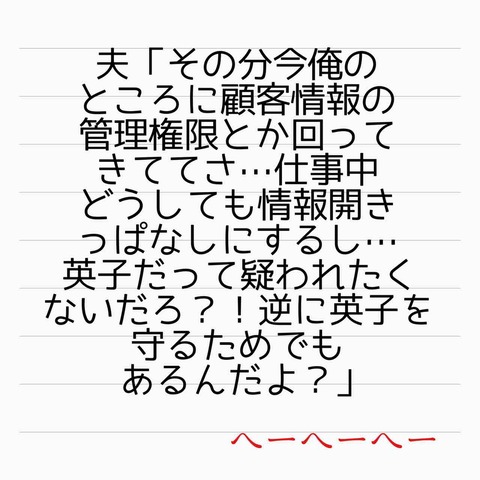 夫「その分今俺の
ところに顧客情報の
管理権限とか回って
きててさ…仕事中
どうしても情報開き
っぱなしにするし…
英子だって疑われたく
ないだろ？！逆に英子を
守るためでも
あるんだよ？」
へーへーへー